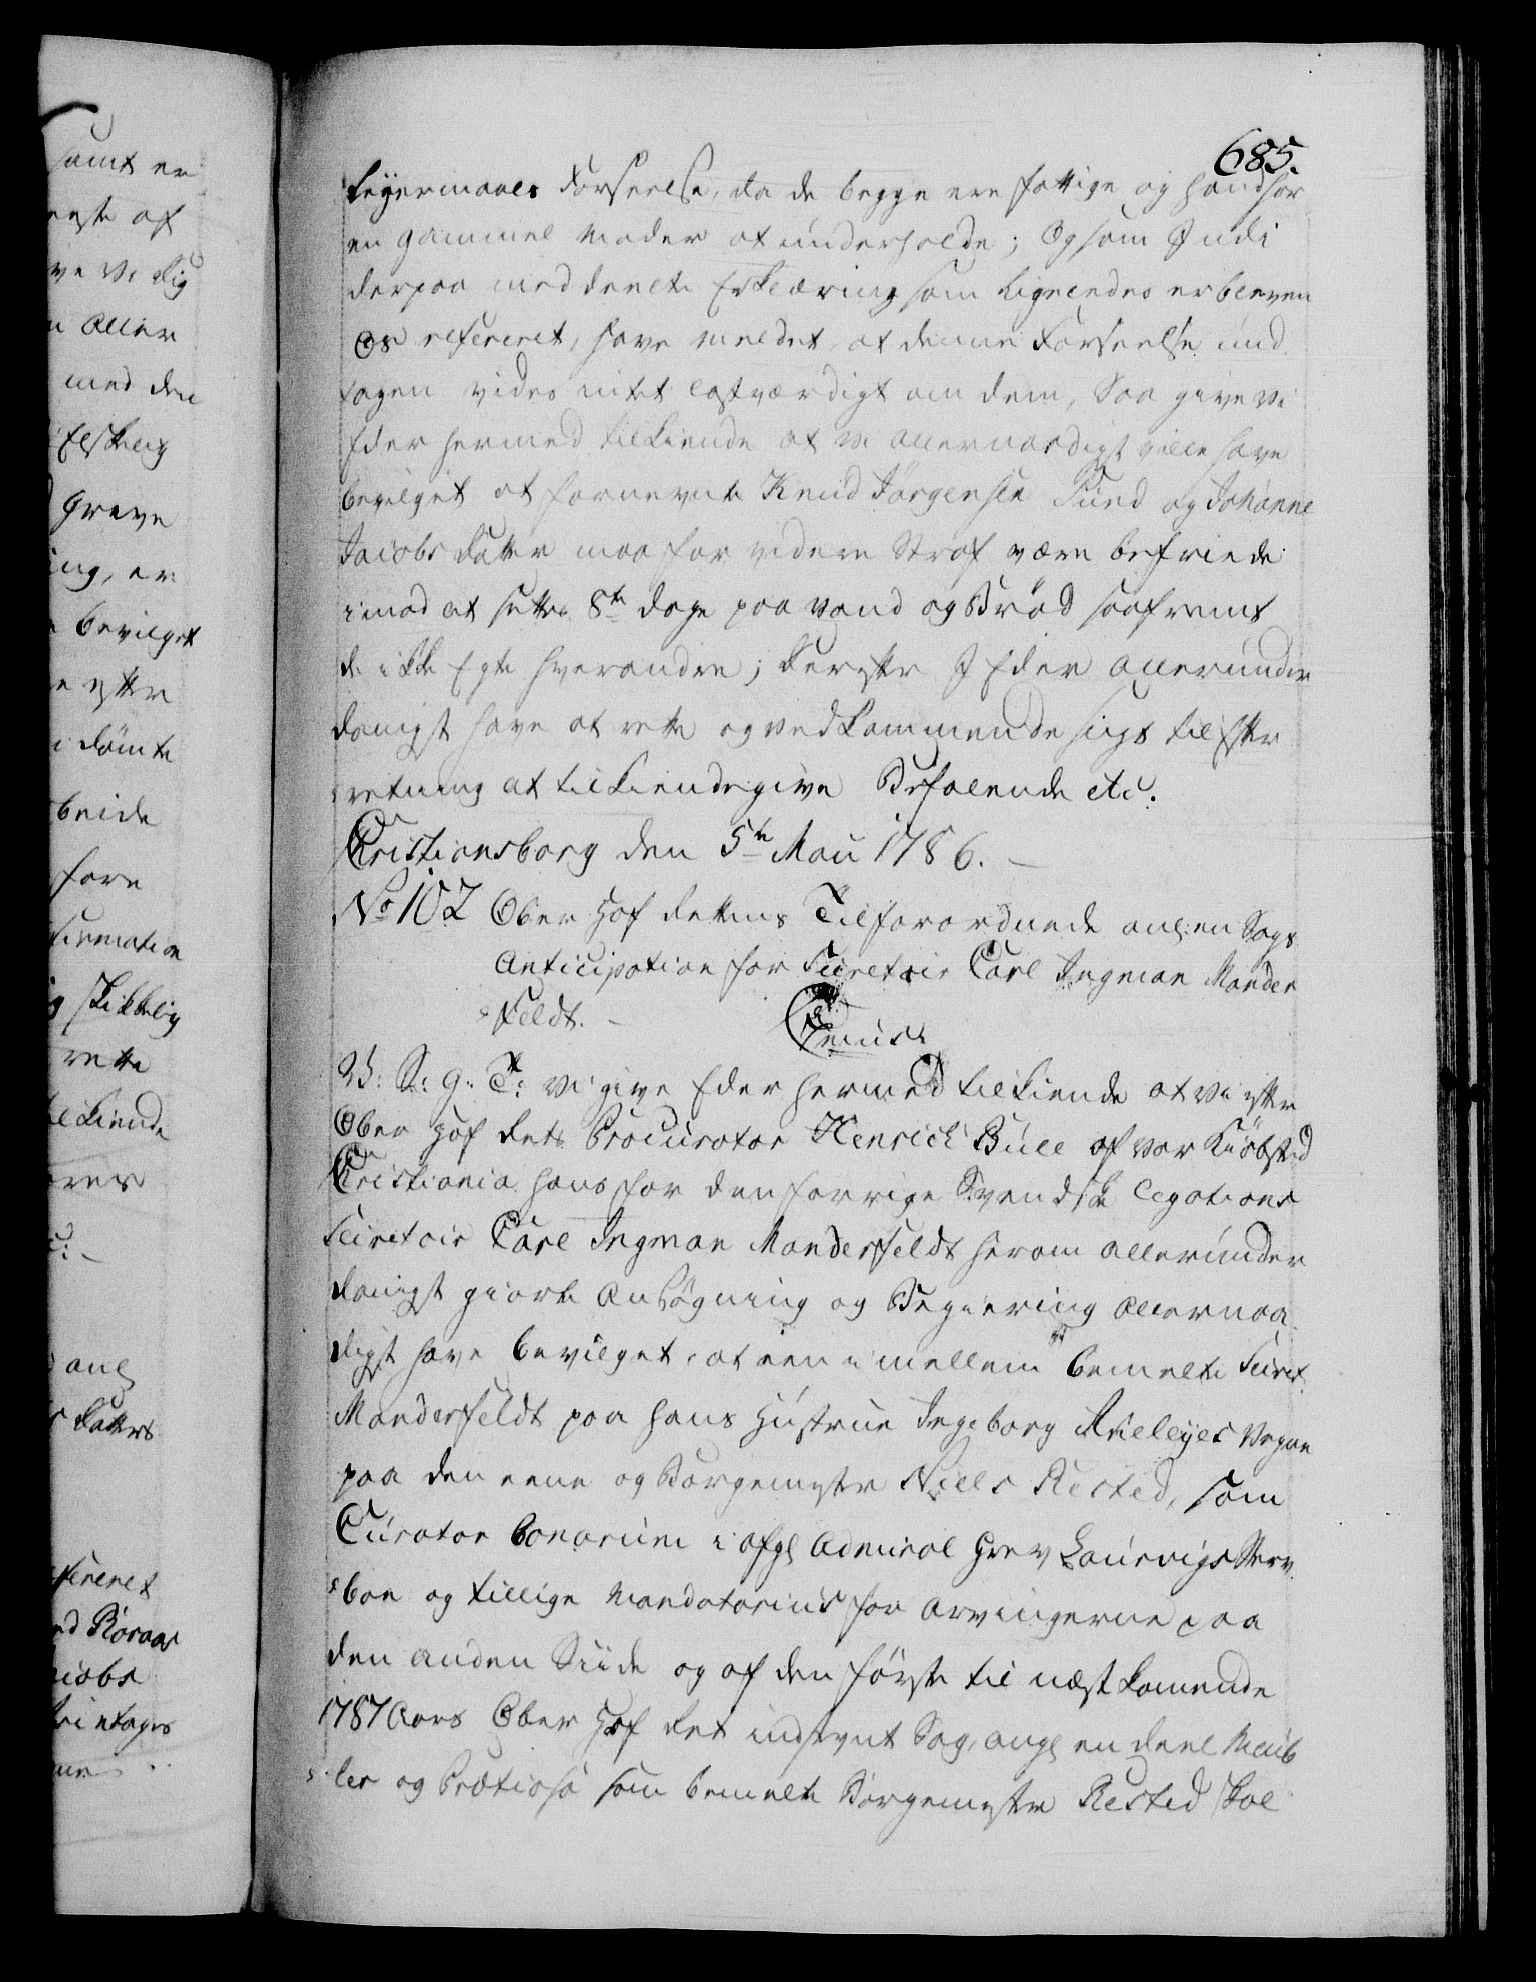 685.
Leyermaals Forseelse, da de begge ere fattige og hand har
en gammel Moder at underholde; Og som I udi
derpaa meddeelte Erklæring som lignendes er bleven
Os refereret, have meldet, at denne Forseelse und
tagen vides intet lastværdigt om dem, Saa give Vi
Eder hermed tilkiende at vi allernaadigst ville have
bevilget at fornevnte Knud Jørgensen Sund og Johanne
Jacobs Datter maa for videre Straf være befriede
imod at sidde 8te dage paa Vand og Brød saafremt
de ikke Egte hverandre; Derefter I Eder allerunder
danigst have at rette og vedkommende sligt til Efter
retning at tilkiendegive Befalende etc.
Christiansborg den 5te Maii 1786.
No 102 Ober Hof Rettens Tilforordnede ang: en Sags
Anticipation for Secretair Carl Ingman Mander
feldt.
V: S: G: T: Vi give Eder hermed tilkiende at Vi efter
Ober Hof Rets Procurator Henrich Bull af vor Kiøbsted
Christiania hans for den forrige Svendske Legations
Secretair Carl Ingman Manderfeldt herom allerunder
danigst giorte Ansøgning og Begiering allernaa
digst have bevilget, at een imellem bemelte Secret.
Manderfeldt paa hans Hustrue Ingeborg Akeleyes Vegne
paa den eene og Borgemester Niels Rested, som
Curator bonorum i afg: Admiral Grev Laurvigs Sterv
boe og tillige Mandatarius for Arvingerne paa
den anden Siide og af den første til næstkomende
1787 Aars Ober Hof Ret indstevnt Sag, ang: en deel Meub
ler og Prætiosa som bemelte Borgemester Rested skal